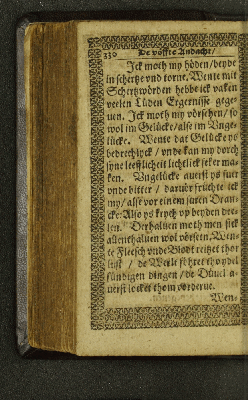 330 De vöffte Andacht/
Jck moth my höden/beyde
in schertze vnd torne. Wente mit
Schertzwörden hebbe ick vaken
veelen Lüden Ergernisse gege-
uen. Jck moth my vörsehen/so
wol im Gelücke/alse im Vnge-
lücke. Wente dat Gelücke ys
bedrechlyck / vnde kan my dorch
syne leeflicheit lichtlick seker ma-
ken. Vngelücke auerst ys suer
vnde bitter / daruör früchte ick
my/alse vor einem suren Dran-
cke: Also ys krych vp beyden dee-
len. Derhaluen moth men sick
allenthaluen wol vörseen. Wen-
te Fleesch vnde Blodt reitzet thor
lust / de Werlt föhret tho ydel
sündigen dingen / de Düuel a-
uerst locket them vorderue.
Wen-